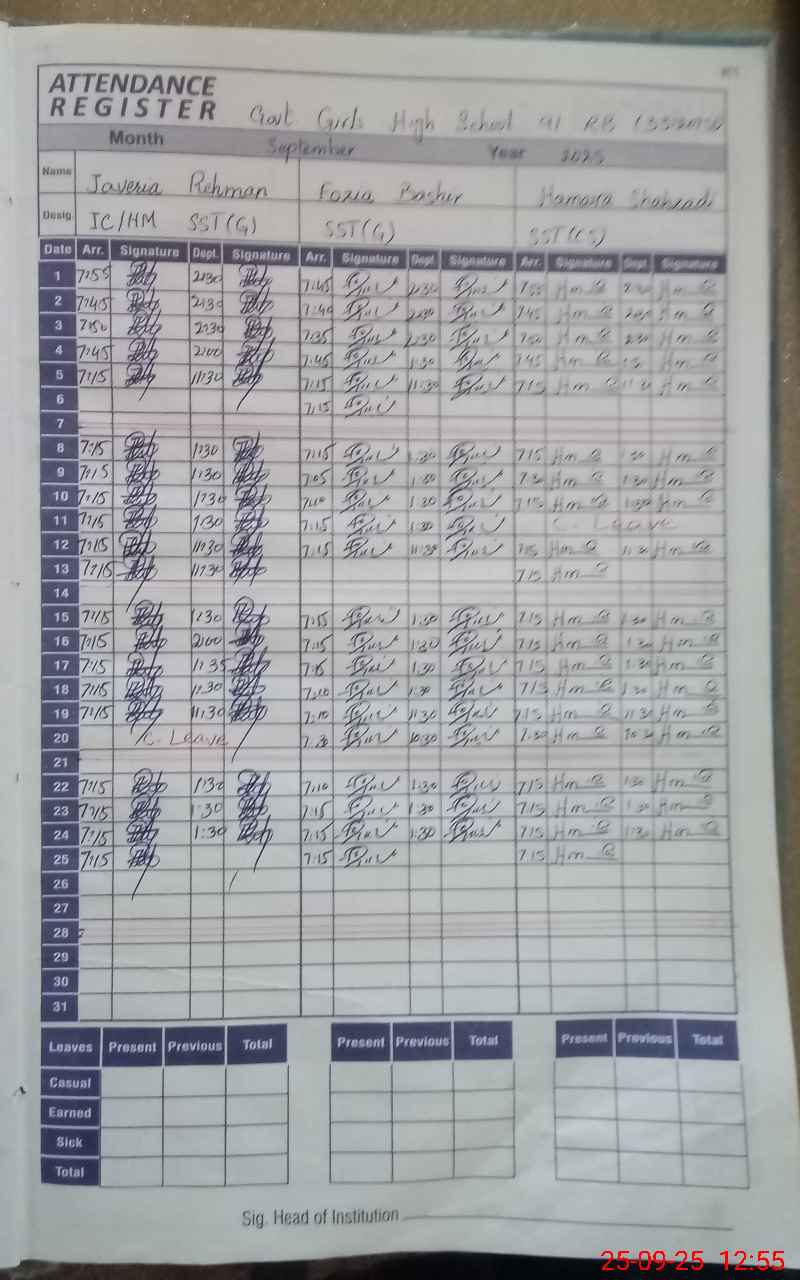 ATTENDANCE
REGISTER Govt Girls High School 91 RB
Month September Year 2025
Name Javeria Rehman Fozia Bashir Hamaira Shahzadi
Desig. IC/HM SST(G) SST(G) SST(CS)
Date Arr. Signature Dept. Signature Arr. Signature Dept. Signature Arr. Signature Dept. Signature
1 7:55 2:30 7:45 2:30 7:55 Hm 2:30 Hm
2 7:45 2:30 7:40 2:30 7:45 Hm Hm
3 7:50 2:30 7:35 2:30 7:50 Hm 2:30 Hm
4 7:45 2:00 7:45 1:30 7:45 Hm Hm
5 7:15 11:30 7:15 11:30 7:15 Hm 11:30 Hm
6 7:15
7
8 7:15 1:30 7:15 1:30 7:15 Hm 1:30 Hm
9 7:15 1:30 7:05 1:30 7:30 Hm 1:30 Hm
10 7:15 1:30 7:10 1:30 7:15 Hm 1:30 Hm
11 7:15 1:30 7:15 1:30 C. Leave
12 7:15 11:30 7:15 11:30 7:15 Hm 11:30 Hm
13 7:15 11:30 7:15 Hm
14
15 7:15 1:30 7:15 1:30 7:15 Hm 1:30 Hm
16 7:15 2:00 7:15 1:30 7:15 Hm 1:30 Hm
17 7:15 1:35 7:15 1:30 7:15 Hm 1:30 Hm
18 7:15 1:30 7:10 1:30 7:15 Hm 1:30 Hm
19 7:15 11:30 7:10 11:30 7:15 Hm 11:30 Hm
20 C. Leave 7:30 10:30 7:30 Hm 10:30 Hm
21
22 7:15 1:30 7:10 1:30 7:15 Hm 1:30 Hm
23 7:15 1:30 7:15 1:30 7:15 Hm 1:30 Hm
24 7:15 1:30 7:15 1:30 7:15 Hm 1:30 Hm
25 7:15 7:15 7:15 Hm
26
27
28
29
30
31
Leaves Present Previous Total Present Previous Total Present Previous Total
Casual
Earned
Sick
Total
Sig. Head of Institution
25-09-25 12:55